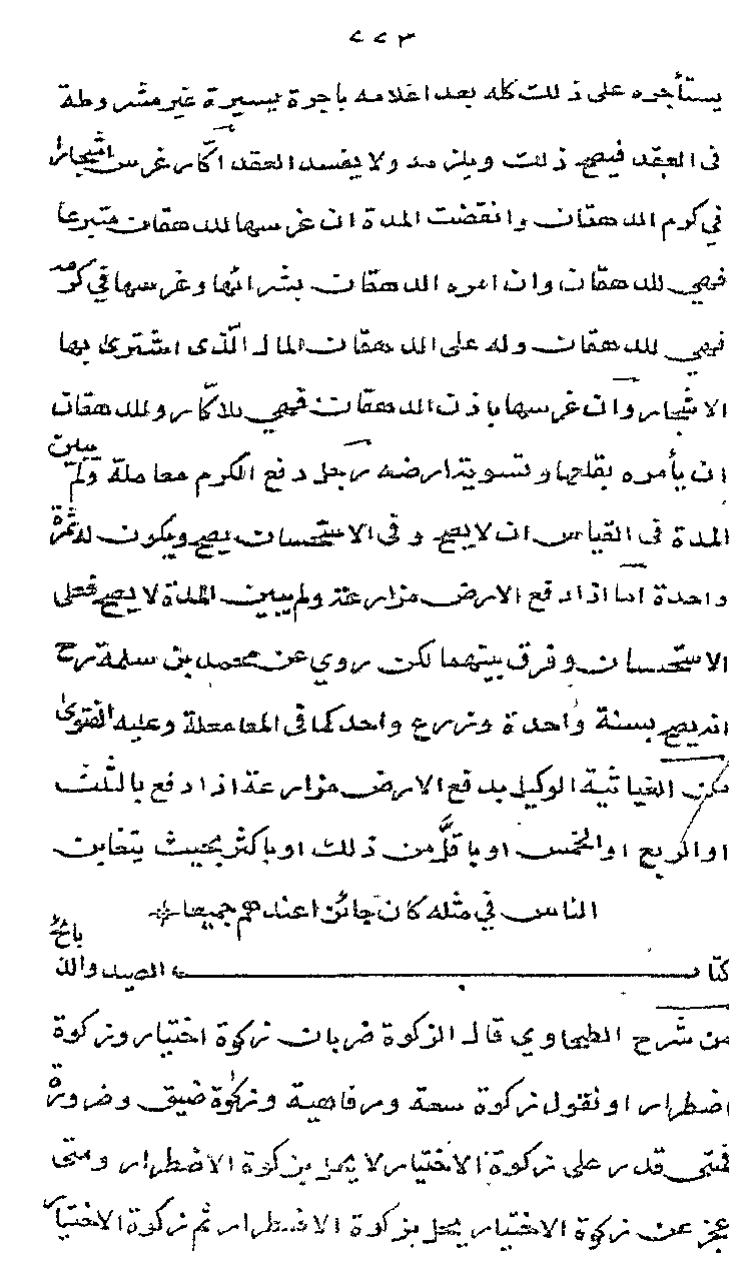 ٢٢٣
يستأجره على ذلك كله بعد اعلامه باجرة يسيرة غير مشروطة
فى العقد فيصح ذلك ويلزمه ولا يفسد العقد اكّار غرس اشجارا
في كرم الدهقان وانقضت المدة ان غرسها للدهقان متبرعا
فهي للدهقان وان امره الدهقان بشرائها وغرسها في كرمه
فهي للدهقان وله على الدهقان المال الّذى اشترى بها
الاشجار وان غرسها باذن الدهقان فهي للاكّار وللدهقان
ان يأمره بقلعها وتسوية ارضه رجل دفع الكرم معاملة ولم يبين
المدة فى القياس ان لا يصح وفى الاستحسان يصح ويكون له ثمرة
واحدة اما اذا دفع الارض مزارعة ولم يبين المدة لا يصح فعلى
الاستحسان وفرق بينهما لكن روي عن محمد بن سلمة رح
انه يصح بسنة واحدة وزرع واحد كما فى المعاملة وعليه الفتوى
من الغياثية الوكيل بدفع الارض مزارعة اذا دفع بالثلث
او الربع او الخمس او باقلَّ من ذلك او باكثر بحيث يتغابن
الناس في مثله كان جائزا عندهم جميعا
كتاب الصيد والذبائح
من شرح الطحاوي قال الزكوة ضربان زكوة اختيار وزكوة
اضطرار او نقول زكوة سعة ومرفاهية وزكوة ضيق وضرورة
فمتى قدر على زكوة الاختيار لا يحل بزكوة الاضطرار ومتى
عجز عن زكوة الاختيار يحل بزكوة الاضطرار ثم زكوة الاختيار